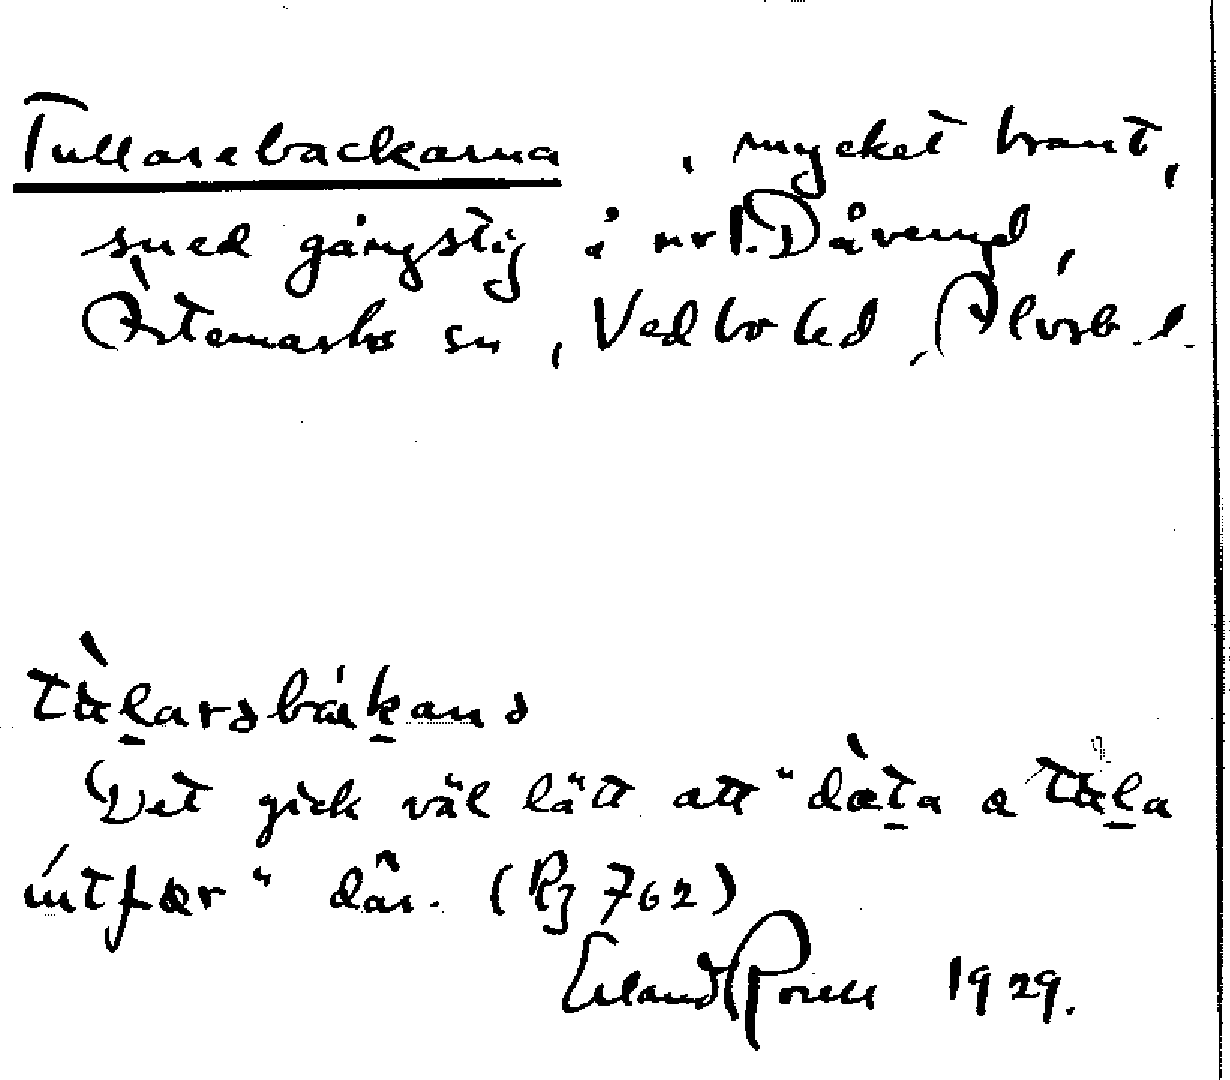 Tullarebackarna , mycket brant,
med gångstig i nr 1. Dåverud,
Ärtemarks sn, Vedbo hd, Älvsb. l.
tùl̠arəbákanə
Det gick väl lätt att "dæ̀t̠a a tùl̠a
útfær" där. (Rz 762)
Erland Rosell 1929.